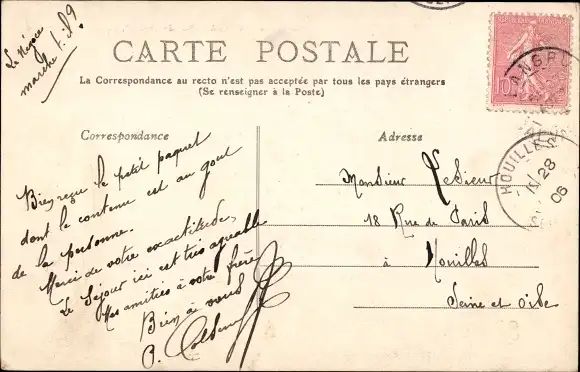 Le Négoce
marche t-il ?
CARTE POSTALE
La Correspondance au recto n'est pas acceptée par tous les pays étrangers
(Se renseigner à la Poste)
Correspondance
Bien reçu le petit paquet
dont le contenu est au goût
de la personne.
Merci de votre exactitude,
Le Séjour ici est très agréable
Mes amitiés à votre frère
Bien à vous
Adresse
Monsieur Lesieur
18 Rue de Paris
à Houilles
Seine et Oise
10
HOUILLES
28
06